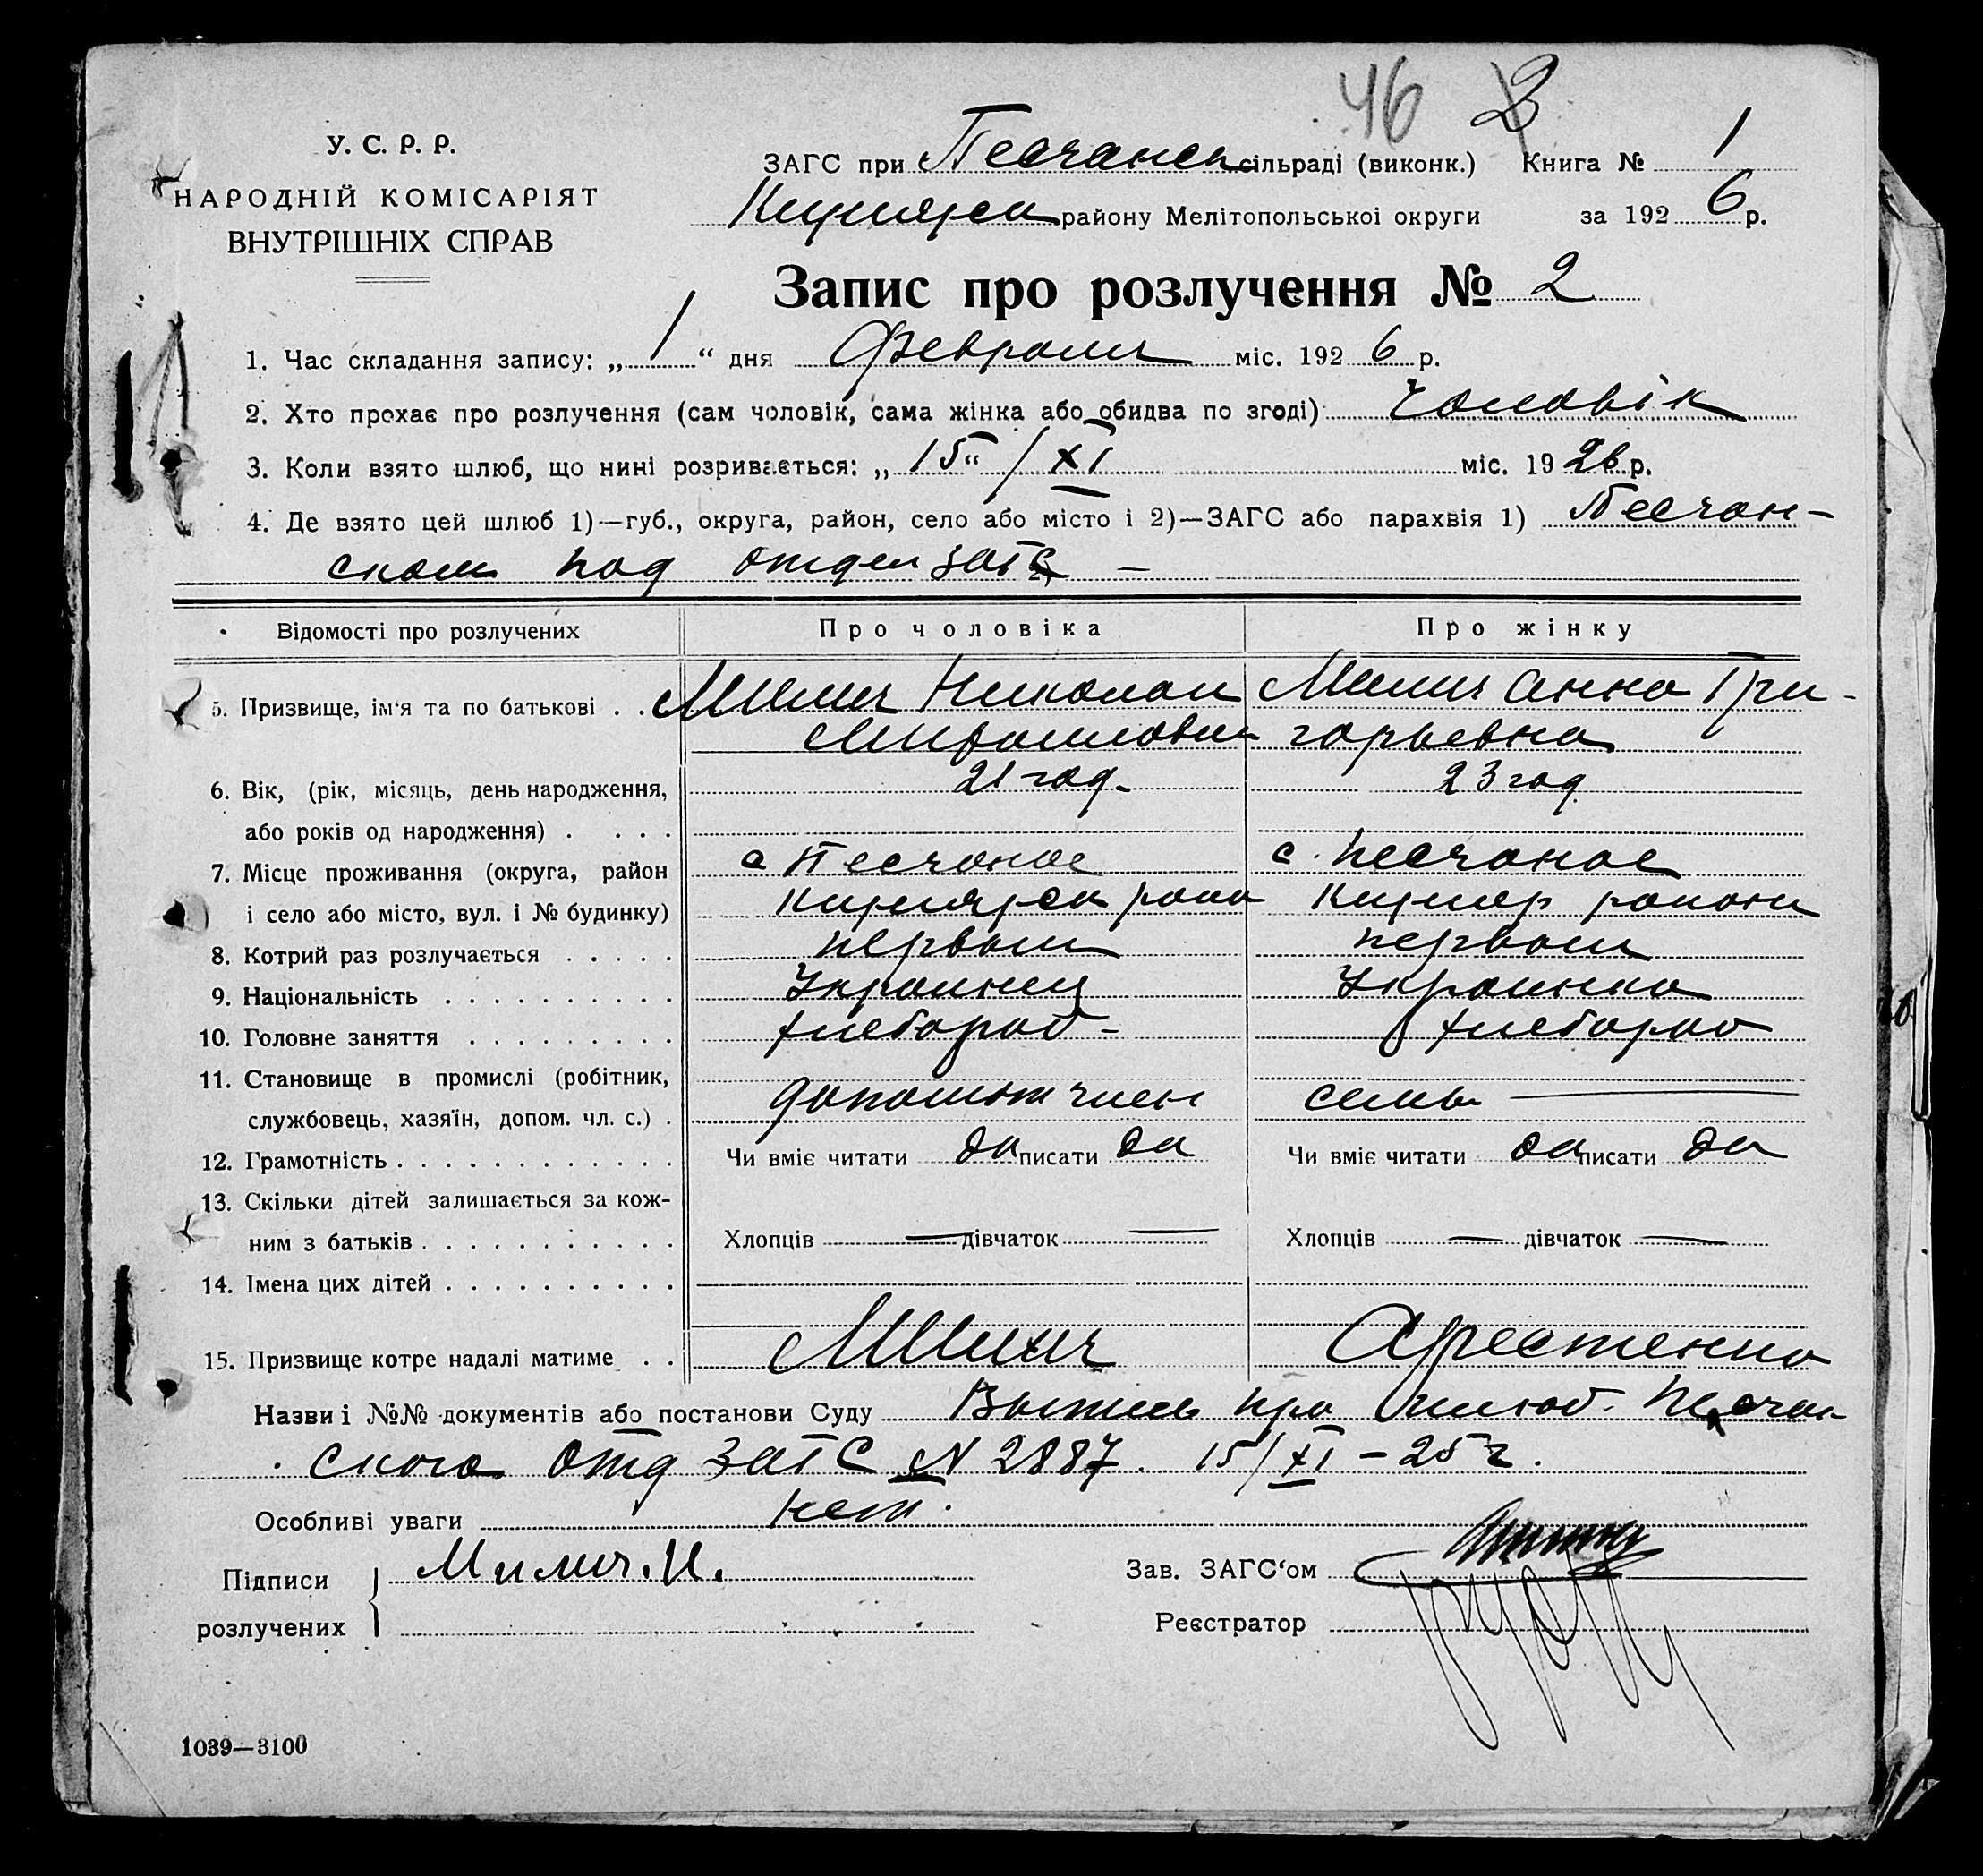 46 2
У. С. Р. Р.
НАРОДНІЙ КОМІСАРІЯТ
ВНУТРІШНІХ СПРАВ
ЗАГС при Песчанск сільраді (виконк.) Книга № 1
району Мелітопольської округи за 192 6 р.
Запис про розлучення № 2
1. Час складання запису: „ 1 “ дня Февраля міс. 192 6 р.
2. Хто прохає про розлучення (сам чоловік, сама жінка або обидва по згоді) Чоловік
3. Коли взято шлюб, що нині розривається: „ 15 “ / XI міс. 19 26 р.
4. Де взято цей шлюб 1)—губ., округа, район, село або місто і 2)—ЗАГС або парахвія 1) Песчан-
ском под отдел ЗАГС —
Відомості про розлучених Про чоловіка Про жінку
5. Призвище, ім‘я та по батькові . . Милич Николай Милич Анна Гри-
горьевна
6. Вік, (рік, місяць, день народження, 21 год. 23 год
або років од народження) . . . .
7. Місце проживання (округа, район с Песчаное с. Песчаное
і село або місто, вул. і № будинку)
8. Котрий раз розлучається . . . . . первый первый
9. Національність . . . . . . . . . . Украинец Украинка
10. Головне заняття . . . . . . . . . хлебороб - хлебороб
11. Становище в промислі (робітник,
службовець, хазяїн, допом. чл. с.) . допомож член семьи —
12. Грамотність . . . . . . . . . . . . Чи вміє читати да писати да Чи вміє читати да писати да
13. Скільки дітей залишається за кож-
ним з батьків . . . . . . . . . . . Хлопців — дівчаток — Хлопців — дівчаток —
14. Імена цих дітей . . . . . . . . . .
15. Призвище котре надалі матиме . . Милич Арестенко
Назви і №№ документів або постанови Суду Вытись про шлюб. Песчан-
ского Отд ЗАГС № 2887. 15/XI – 25 г.
Особливі уваги нет.
Підписи Милич. Н. Зав. ЗАГС‘ом
розлучених Реєстратор
1039—3100